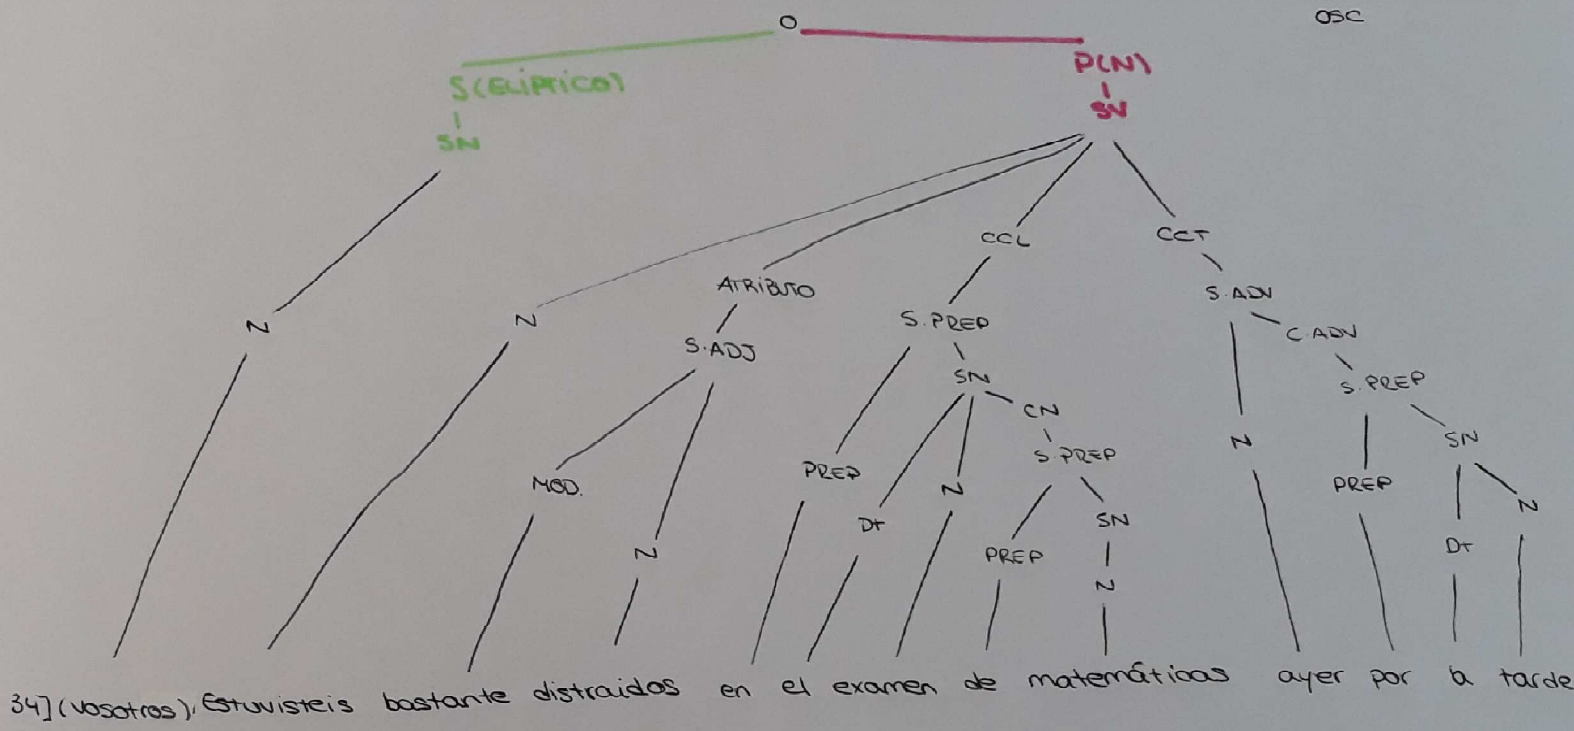 O OSC
S(ELÍPTICO) P(N)
SN SV
CCL CCT
ATRIBUTO S.ADV
N N S.PREP C.ADV
S.ADJ SN S.PREP
CN SN
N
MOD. PREP S.PREP PREP N
N Dt N PREP SN Dt
N
34](vosotros), Estuvisteis bastante distraidos en el examen de matemáticas ayer por la tarde